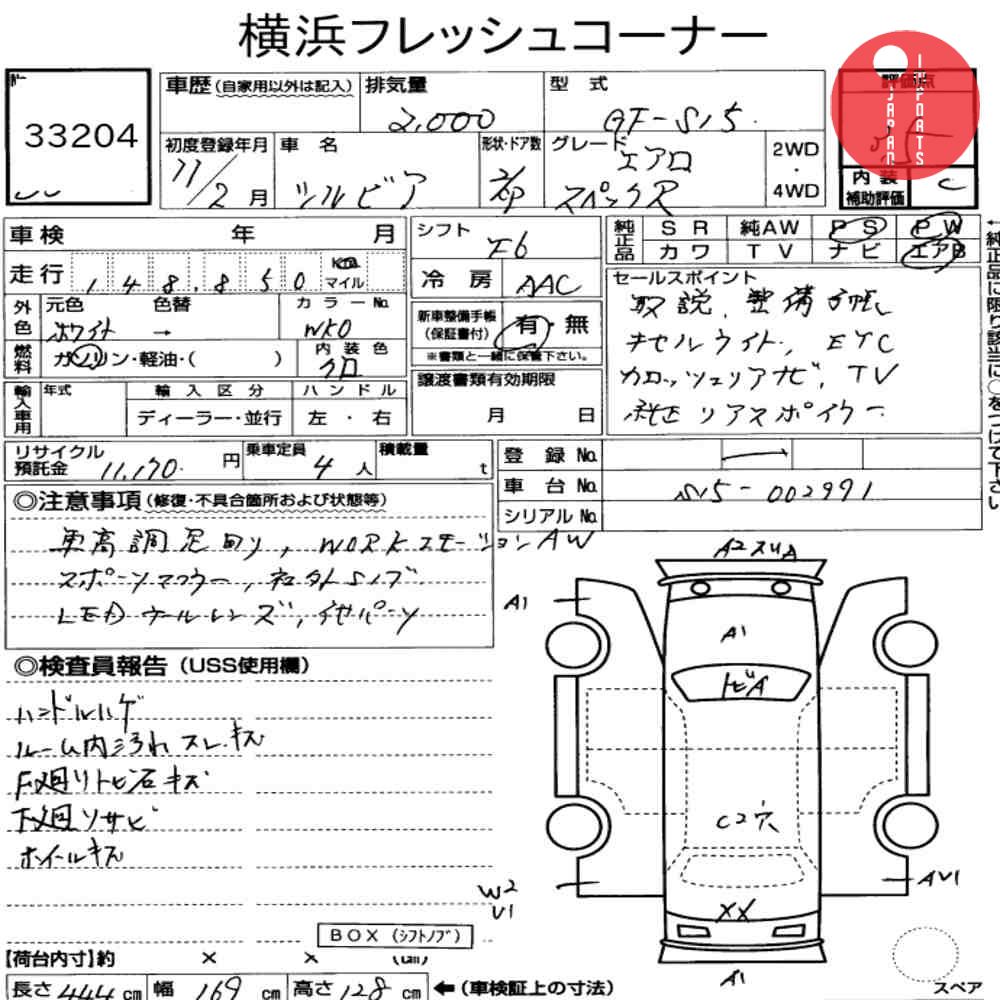 横浜フレッシュコーナー
33204
車歴(自家用以外は記入) 排気量 2,000 型式 GF-S15.
初度登録年月 11/2月 車名 シルビア 形状・ドア数 2/CP グレード エアロ スペックR 2WD・4WD
評価点
内装補助評価 C
JAPAN IMPORTS
車検 年 月
走行 148,850 Km マイル
外色 元色 ホワイト 色替 → カラーNo. WK0
燃料 ガソリン・軽油・( ) 内装色 クロ
輸入車用 年式 輸入区分 ディーラー・並行 ハンドル 左・右
シフト F6
冷房 AAC
新車整備手帳(保証書付) 有・無
※書類と一緒に保管下さい。
譲渡書類有効期限
月 日
純正品 SR 純AW PS PW
カワ TV ナビ エアB
セールスポイント
取説、整備手帳
キセルライト、ETC
カロッツェリアナビ、TV
純正リアスポイラー
←純正品に限り該当に○をつけて下さい
リサイクル預託金 11,170. 円 乗車定員 4人 積載量 t
登録No.
車台No. S15-002991
シリアルNo.
◎注意事項(修復・不具合箇所および状態等)
車高調足回り, WORKエモーションAW
スポーツマフラー, 社外Sノブ
LEDテールレンズ, 他パーツ
◎検査員報告(USS使用欄)
ハンドルハゲ
ルーム内汚れスレキズ
F廻りトビ石キズ
下廻りサビ
ホイールキズ
A2スリA
A1
A1
トビA
C2穴
W2
U1
AU1
XX
A1
BOX(シフトノブ)
【荷台内寸】約 × × (cm)
長さ 444 cm 幅 169 cm 高さ 128 cm ←(車検証上の寸法)
スペア